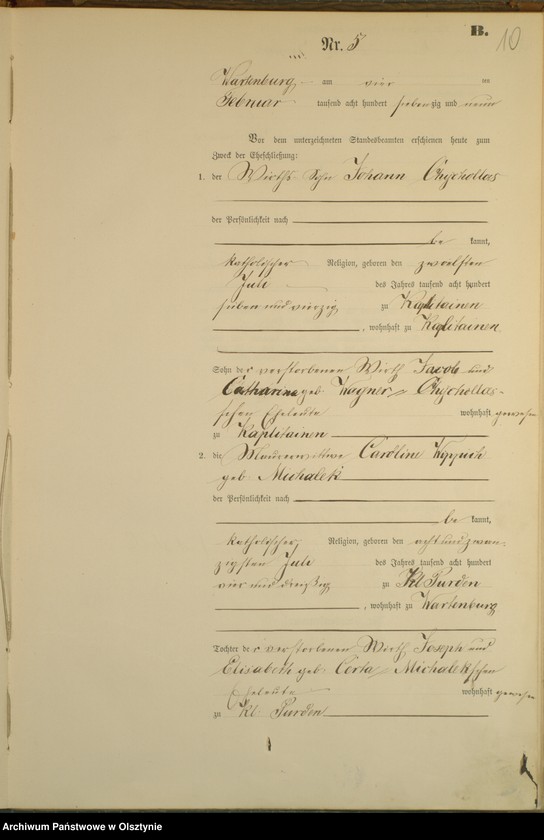 B.
10
Nr. 5
Wartenburg am vier ten
Februar tausend acht hundert siebenzig und neun
Vor dem unterzeichneten Standesbeamten erschienen heute zum
Zweck der Eheschließung:
1. der Wirths Sohn Johann Chychollas
der Persönlichkeit nach
be kannt,
katholischer Religion, geboren den zwoelften
Juli des Jahres tausend acht hundert
sieben und vierzig zu Kaplitainen
, wohnhaft zu Kaplitainen
Sohn der verstorbenen Wirth Jacob und
Catharina geb Wagner Chychollas-
schen Eheleute wohnhaft gewesen
zu Kaplitainen
2. die Maurerwittwe Caroline
geb Michalek
der Persönlichkeit nach
be kannt,
katholischer Religion, geboren den acht und zwan-
zigsten Juli des Jahres tausend acht hundert
vier und dreißig zu Kl Purden
, wohnhaft zu Wartenburg
Tochter der verstorbenen Wirth Joseph und
Elisabeth geb Michalekschen
Eheleute wohnhaft gewesen
zu Kl Purden
Archiwum Państwowe w Olsztynie